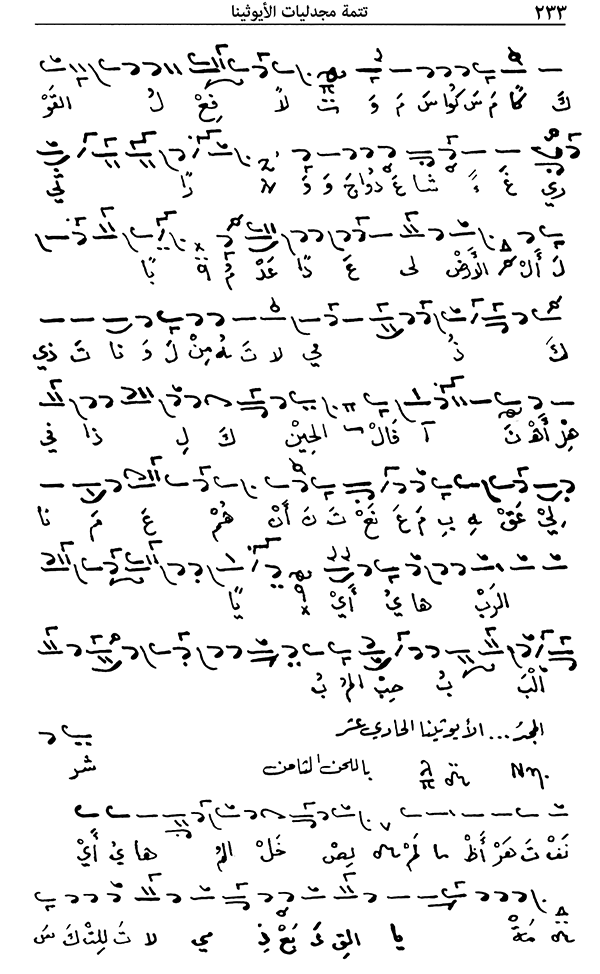 ٢٣٣ تتمة مجدليات الأيوثينا
كَ مَ سَ كُوا سَ مَ وَ تِ لاً فِعْ لُ القَوْ
ري غَ ءً شا عَ دُواجَ وَ وَ دًا ني
لَ أَنْ الأَرْضْ لى عَ دًا عَدْ مُ بًا
كَ ذُ في لا تَ هُ مِنْ لَ وَ نا تَ ذي
هِزْ أَهْ نَ آ قَالْ الحِيْنْ كَ لِ ذا في
لِيْ عَقْ هِ بِ مَ عَ نَعْ تَ نَ أَنْ هُمْ عَ مَ نا
الرَبْ ها يُ أَيْ يًا
أَلْبَ بُ حِبْ المُ بُ
المجدُ... الأيوثينا الحادي عشر
Nη. باللحن الثامن شر
نَفْ تَ هَرْ أَظْ ما لَمْ لِصْ خَلْ المُ ها يُ أَيْ
مَةْ يا القِ ءَ بَعْ ذِ مي لا تَ لِلتْ كَ سَ